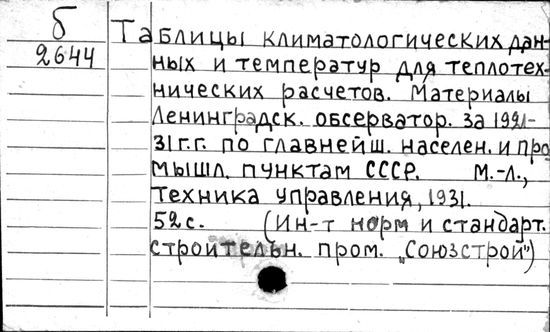 б
2644
Таблицы климатологических дан-
ных и температур для теплотех-
нических расчетов. Материалы
Ленинградск. обсерватор. за 1921-
31 г.г. по главнейш. населен. и про
мышл. пунктам СССР. М.-Л.,
Техника управления, 1931.
52 с. (Ин-т норм и стандарт.
строительн. пром. „Союзстрой")